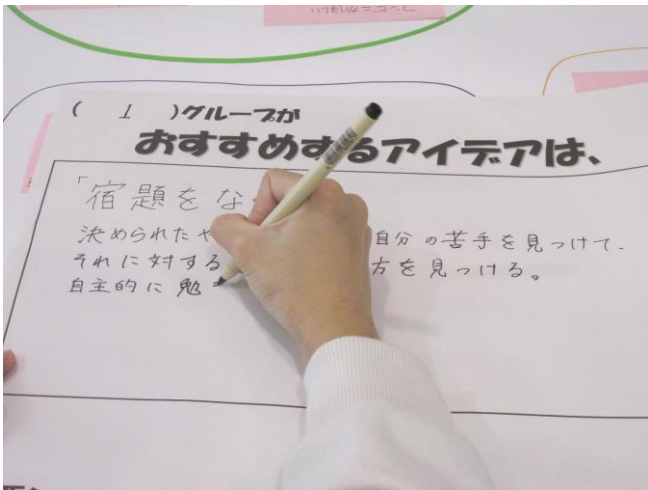 ( 1 )グループが
おすすめするアイデアは、
「宿題をな
決められたや 自分の苦手を見つけて.
それに対する 方を見つける。
自主的に勉